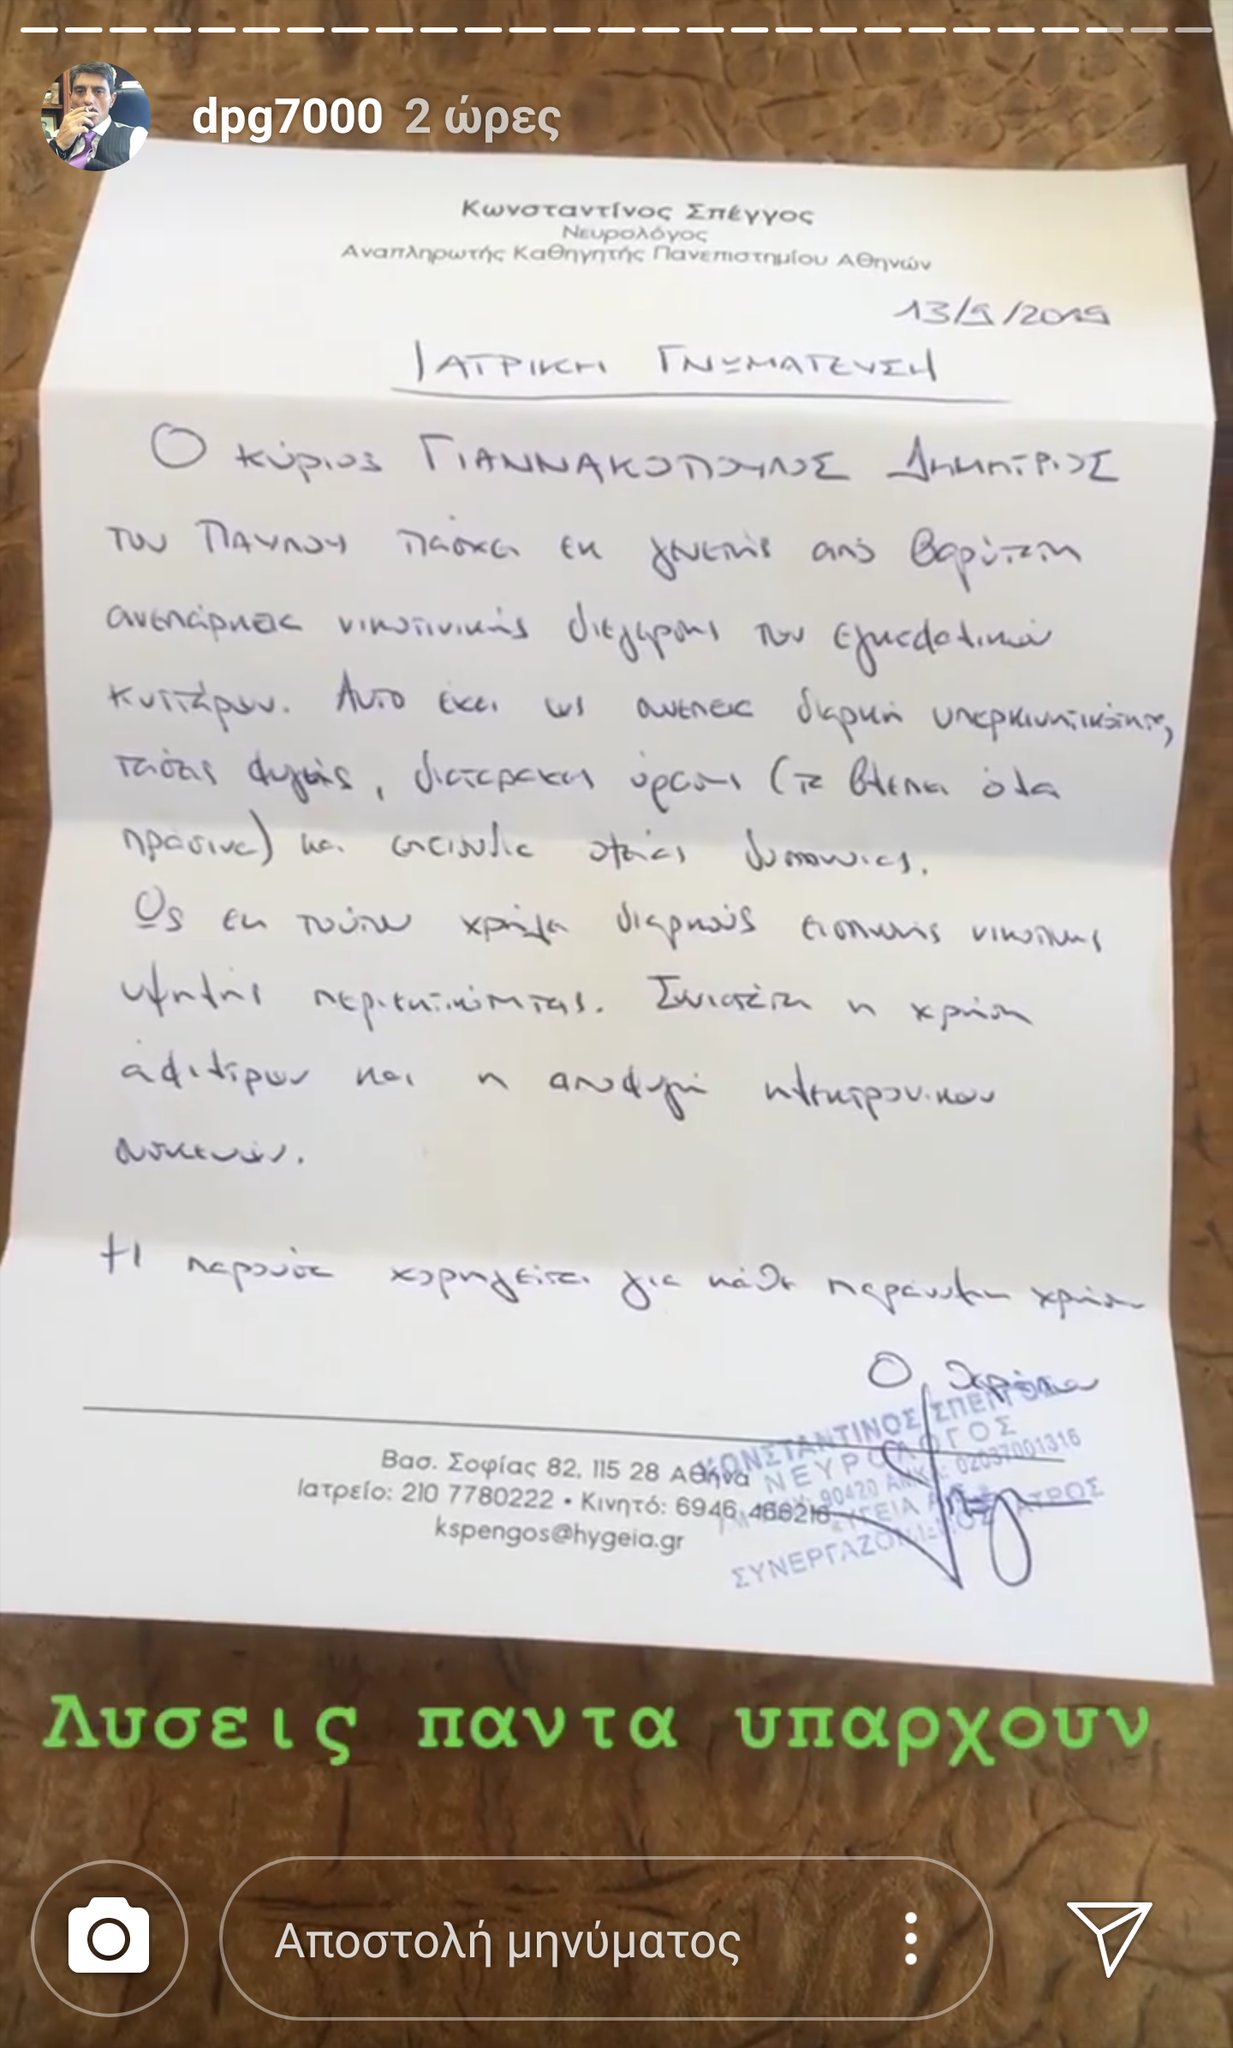 dpg7000 2 ώρες
Κωνσταντίνος Σπέγγος
Νευρολόγος
Αναπληρωτής Καθηγητής Πανεπιστημίου Αθηνών
13/9/2019
ΙΑΤΡΙΚΗ ΓΝΩΜΑΤΕΥΣΗ
Ο κύριος ΓΙΑΝΝΑΚΟΠΟΥΛΟΣ ΔΗΜΗΤΡΙΟΣ
του ΠΑΥΛΟΥ πάσχει εκ γενετής από βαρύτατη
ανεπάρκεια νικοτινικής διέγερσης των εγκεφαλικών
κυττάρων. Αυτό έχει ως συνέπεια διαρκή υπερκινητικότητα,
τάσεις φυγής, διαταραχές όρασης (τα βλέπει όλα
πράσινα) και επεισόδια οξείας δύσπνοιας.
Ως εκ τούτου χρήζει διαρκούς εισπνοής νικοτίνης
υψηλής περιεκτικότητας. Συνιστάται η χρήση
άφιλτρων και η αποφυγή ηλεκτρονικών
συσκευών.
Η παρούσα χορηγείται για κάθε παράνομη χρήση
Ο θεράπων
ΚΩΝΣΤΑΝΤΙΝΟΣ ΣΠΕΓΓΟΣ
ΝΕΥΡΟΛΟΓΟΣ
90420 ΑΜΚΑ: 02037001316
«ΥΓΕΙΑ
ΣΥΝΕΡΓΑΖΟΜΕΝΟΣ ΙΑΤΡΟΣ
Βασ. Σοφίας 82, 115 28 Αθήνα
Ιατρείο: 210 7780222 • Κινητό: 6946 466216
kspengos@hygeia.gr
Λυσεις παντα υπαρχουν
Αποστολή μηνύματος